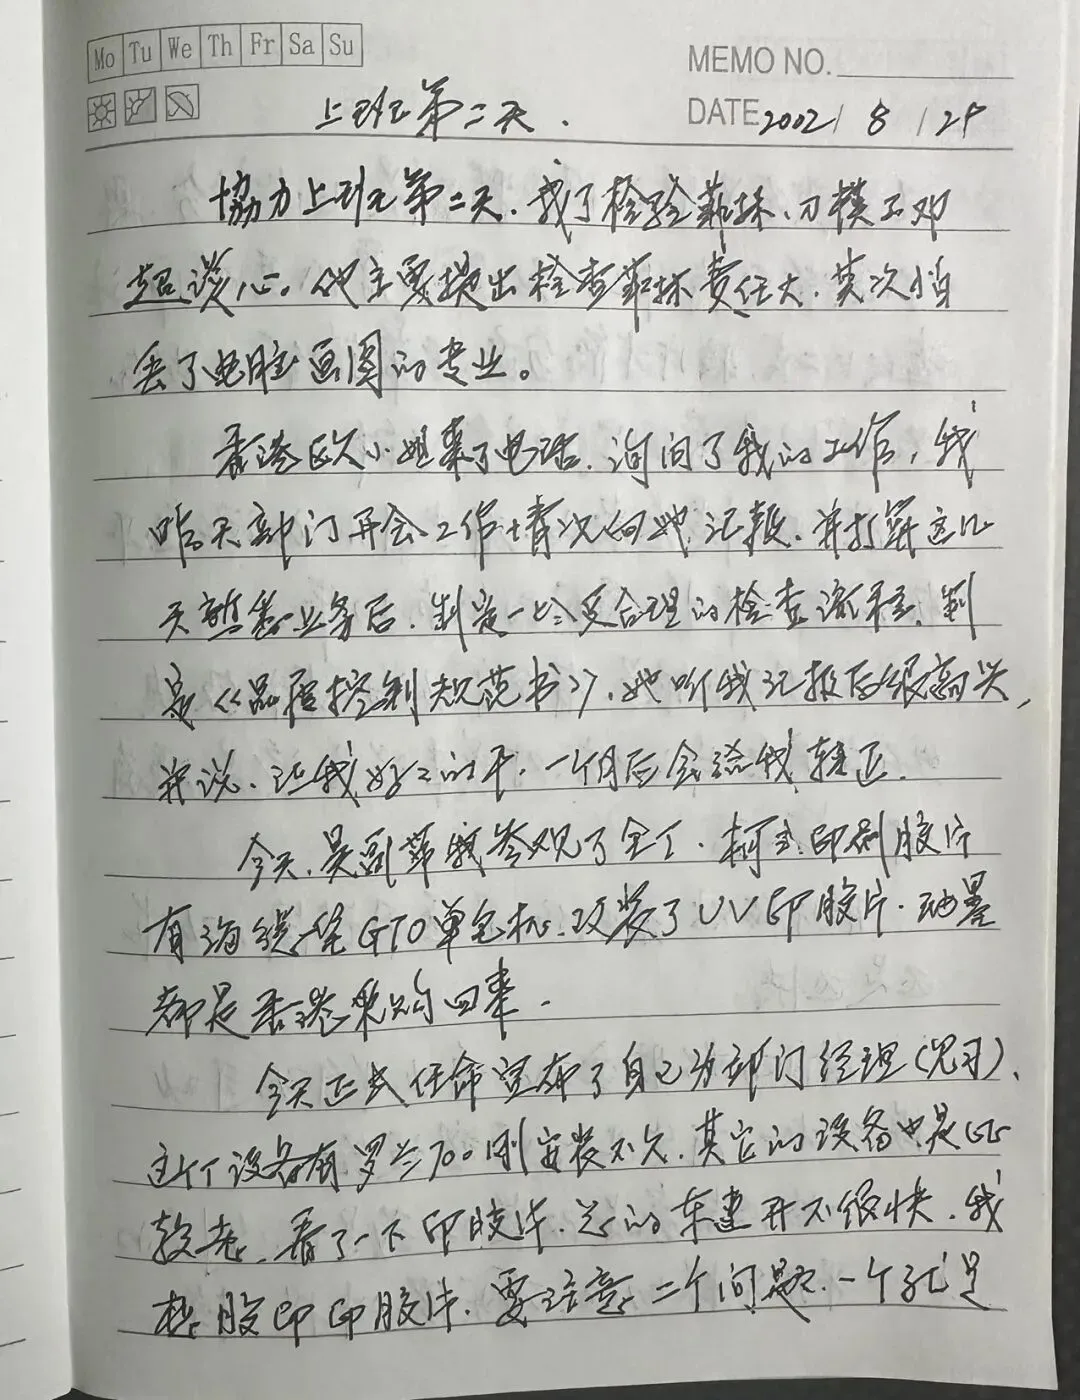 Mo Tu We Th Fr Sa Su
MEMO NO.
DATE 2002/ 8 /29
上班第二天.
協力上班第二天.我了检验菲林.刀模了邓
超谈心。他主要提出检查菲林责任大.其次怕
丢了电脑画图的专业。
香港欧小姐来了电话.询问了我的工作,我
昨天部门开会工作情况向她汇报.并打算这几
天熟悉业务后.制定一些合理的检查流程.制
定《品质控制规范书》,她听我汇报后很高兴,
并说.让我好好的干.一个月后会给我转正.
今天.吴副带我参观了全厂.柯式印刷胶片
有海德堡GTO单色机.改装了UV印胶片.油墨
都是香港采购回来.
今天正式任命宣布了自己为部门经理(见习).
这个厂设备有罗兰700刚安装不久.其它的设备也是比
较老.看了一下印胶片.总的车速开不很快.我
想胶印印胶片.要注意二个问题.一个就是